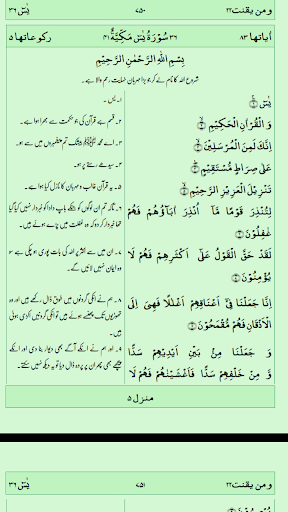 ومن یقنت ۲۲ ۷۵۰ یٰسٓ ۳۶
اٰیاتها ۸۳ ۳۶ سُوْرَةُ يٰسٓ مَكِّيَّةٌ ۴۱ رکوعاتها ۵
بِسْمِ اللّٰهِ الرَّحْمٰنِ الرَّحِيْمِ
شروع اللہ کا نام لے کر جو بڑا مہربان نہایت رحم والا ہے۔
يٰسٓ ۚ﴿۱﴾
وَ الْقُرْاٰنِ الْحَكِيْمِ ۙ﴿۲﴾
اِنَّكَ لَمِنَ الْمُرْسَلِيْنَ ۙ﴿۳﴾
عَلٰى صِرَاطٍ مُّسْتَقِيْمٍ ؕ﴿۴﴾
تَنْزِيْلَ الْعَزِيْزِ الرَّحِيْمِ ۙ﴿۵﴾
لِتُنْذِرَ قَوْمًا مَّاۤ اُنْذِرَ اٰبَآؤُهُمْ فَهُمْ
غٰفِلُوْنَ ﴿۶﴾
لَقَدْ حَقَّ الْقَوْلُ عَلٰۤى اَكْثَرِهِمْ فَهُمْ لَا
يُؤْمِنُوْنَ ﴿۷﴾
اِنَّا جَعَلْنَا فِيْۤ اَعْنَاقِهِمْ اَغْلٰلًا فَهِيَ اِلَى
الْاَذْقَانِ فَهُمْ مُّقْمَحُوْنَ ﴿۸﴾
وَ جَعَلْنَا مِنْۢ بَيْنِ اَيْدِيْهِمْ سَدًّا
وَّ مِنْ خَلْفِهِمْ سَدًّا فَاَغْشَيْنٰهُمْ فَهُمْ لَا
۱۔ یٰس۔
۲۔ قسم ہے قرآن کی جو حکمت سے بھرا ہوا ہے۔
۳۔ اے محمد ﷺ بیشک تم پیغمبروں میں سے ہو۔
۴۔ سیدھے رستے پر ہو۔
۵۔ یہ قرآن غالب و مہربان کا نازل کیا ہوا ہے۔
۶۔ تاکہ تم ان لوگوں کو جنکے باپ دادا کو خبردار نہیں کیا گیا
تھا خبردار کر دو کہ وہ غفلت میں پڑے ہوئے ہیں۔
۷۔ ان میں سے اکثر پر اللہ کی بات پوری ہو چکی ہے سو
وہ ایمان نہیں لائیں گے۔
۸۔ ہم نے انکی گردنوں میں طوق ڈال رکھے ہیں اور وہ
ٹھوڑیوں تک پھنسے ہوئے ہیں تو انکی گردنیں اکڑی ہوئی
ہیں۔
۹۔ اور ہم نے انکے آگے بھی دیوار بنا دی اور انکے
پیچھے بھی پھر ان پر پردہ ڈال دیا تو یہ دیکھ نہیں سکتے۔
منزل ۵
ومن یقنت ۲۲ ۷۵۱ یٰسٓ ۳۶